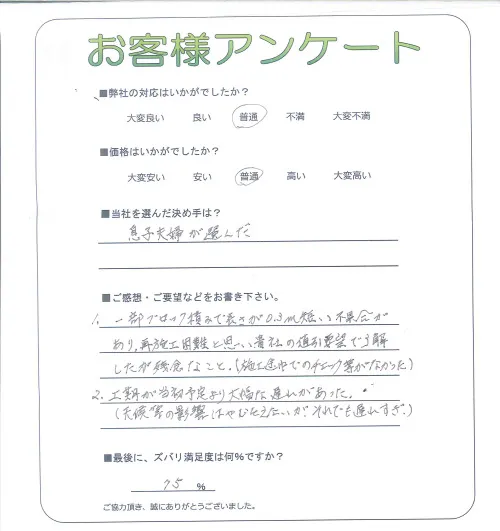 お客様アンケート
■弊社の対応はいかがでしたか？
大変良い 良い 普通 不満 大変不満
■価格はいかがでしたか？
大変安い 安い 普通 高い 大変高い
■当社を選んだ決め手は？
息子夫婦が選んだ
■ご感想・ご要望などをお書き下さい。
1. 一部ブロック積みで長さが0.3m短い不具合が
あり,再施工困難と思い貴社の値引要望で了解
したが残念なこと.(施工途中でのチェック等がなかった)
2. 工期が当初予定より大幅な遅れがあった.
(天候等の影響はやむをえないが それでも遅れすぎ.)
■最後に、ズバリ満足度は何%ですか？
75 %
ご協力頂き、誠にありがとうございました。